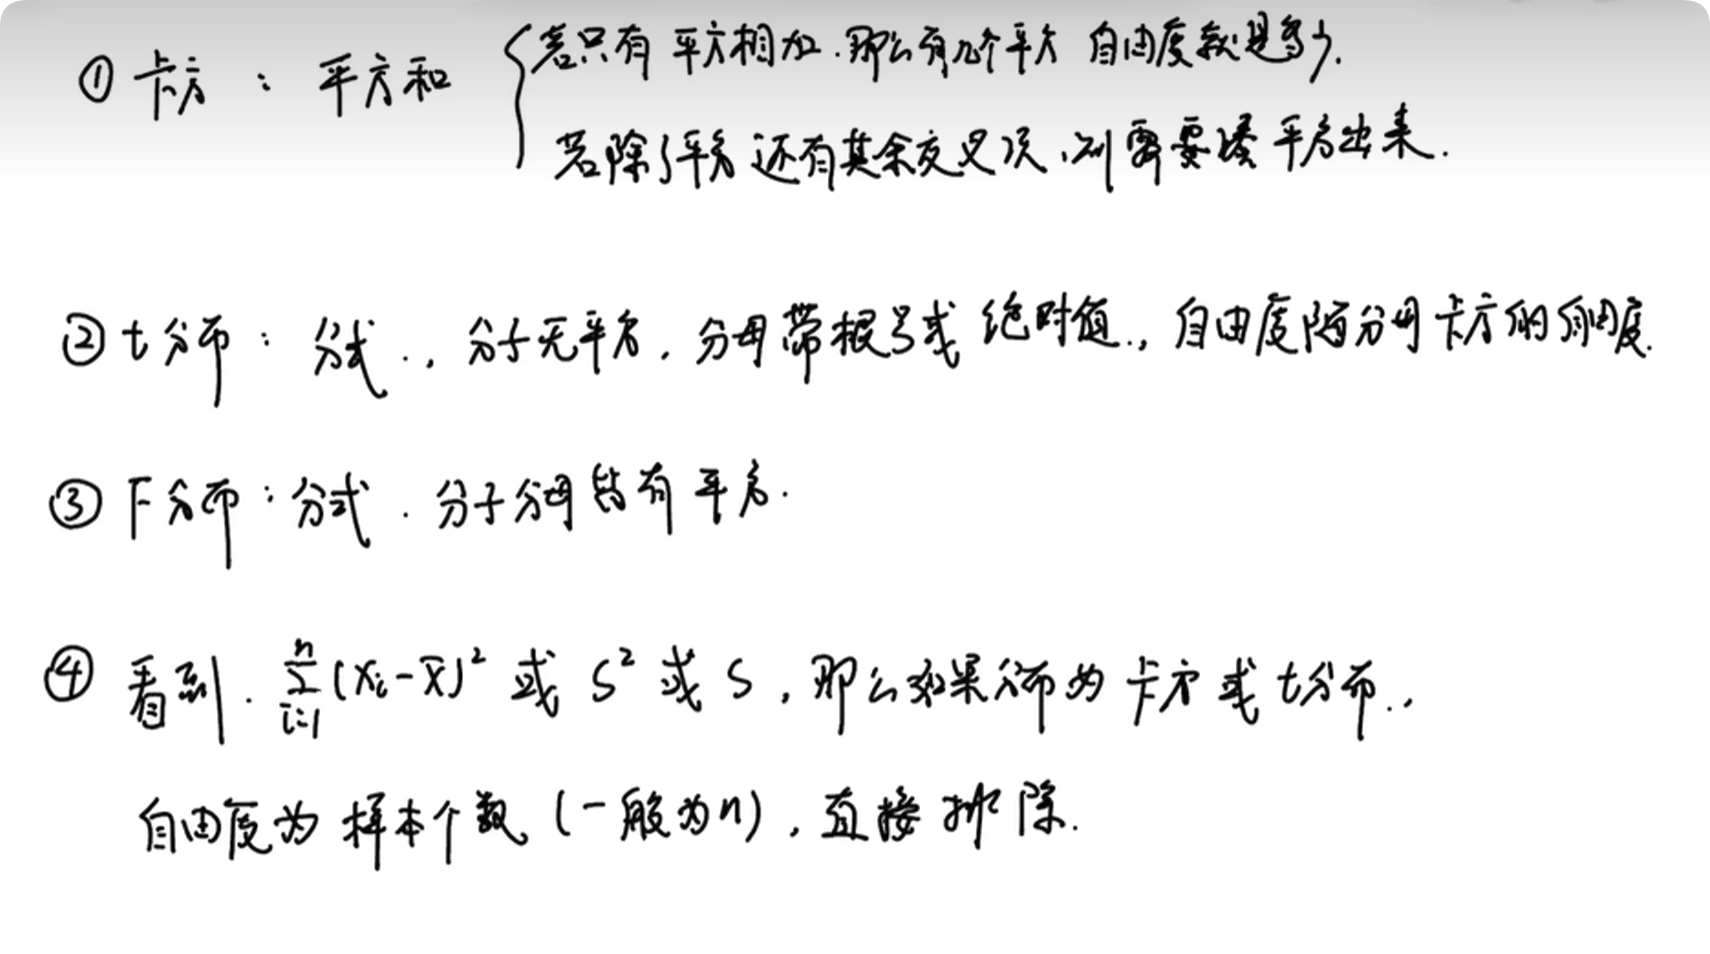 ① 卡方 : 平方和 { 若只有平方相加.那么有几个平方 自由度就是多少.
若除了平方还有其余交叉项,则需要凑平方出来.
② t分布: 分式., 分子无平方, 分母带根号或绝对值., 自由度随分母卡方的自由度.
③ F分布: 分式. 分子分母皆有平方.
④ 看到. \sum_{i=1}^{n}(x_i-\bar{x})^2 或 S^2 或 S, 那么如果分布为 卡方 或 t分布.,
自由度为样本个数 (一般为n), 直接排除.